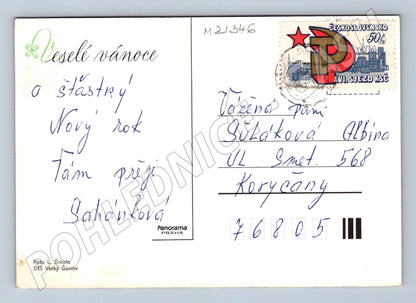 M21346
Veselé vánoce
a šťastný
Nový rok
Vám přeji
Sahánková
Foto L. Sikota
SG Velký Šenov
Panorama
PRAHA
ČESKOSLOVENSKO
50h
XVI. SJEZD KSČ
Vážená paní
Albína
UL Smet. 568
Koryčany
76805
POHLEDNICE